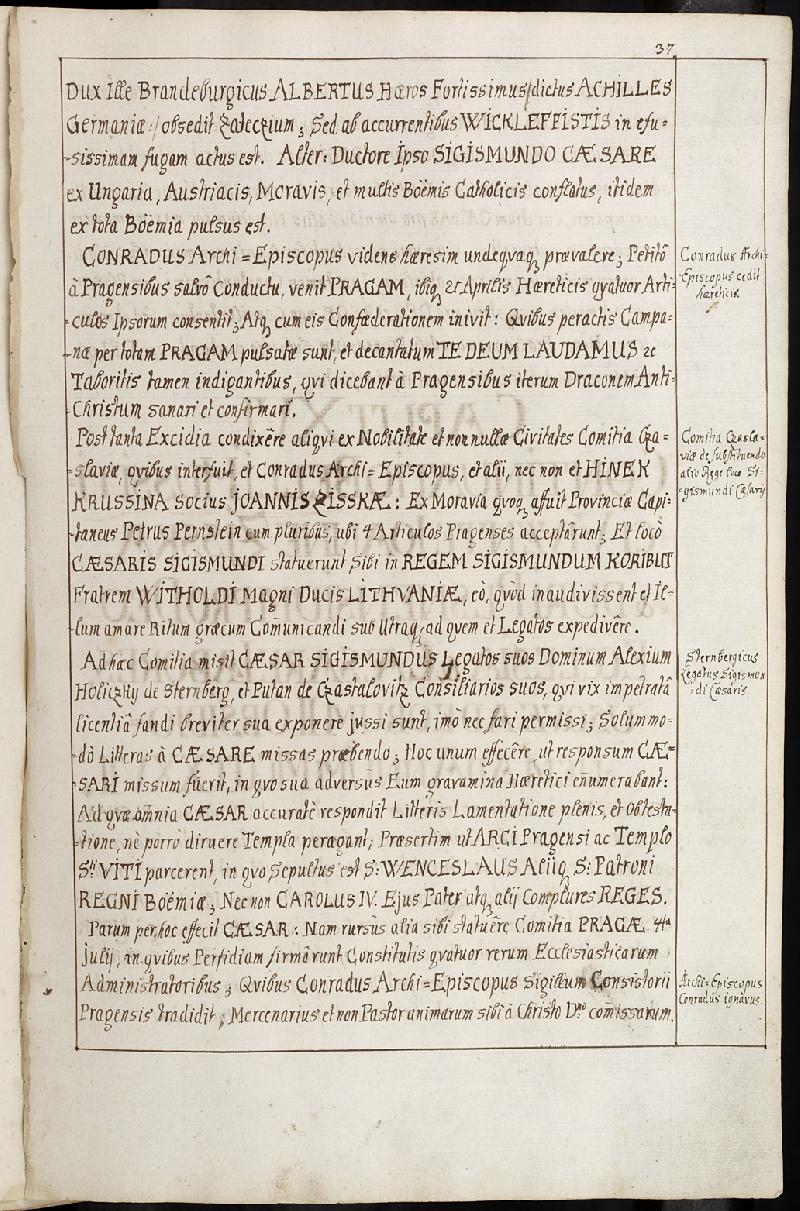 37.
Dux Ille Brandeburgicus ALBERTUS Hæros Fortissimus /dictus ACHILLES
Germaniæ:/ obsedit Zateczium; Sed ab accurrentibus WICKLEFFISTIS in efu-
-sissimam fugam actus est. Alter: Ductore Ipso SIGISMUNDO CÆSARE
ex Ungaria, Austriacis, Moravis, et multis Boëmis Catholicis conflatus, itidem
ex tota Boëmia pulsus est.
CONRADUS Archi=Episcopus videns hæresim undequaq, prævalere; Petitô
à Pragensibus salvô Conductu, venit PRAGAM, ibiq, Aprilis Hæreticis qvatuor Arti=
-culos Ipsorum consentit; Atq, cum eis Confæderationem inivit: Qvibus peractis Campa-
-næ per totam PRAGAM pulsatæ sunt, et decantatum TE DEUM LAUDAMUS &c
Taboritis tamen indigantibus, qvi dicebant à Pragensibus iterum Draconem Anti=
-Christum sanari et confirmari.
Conradus Archi=
-Episcopus cedit
hæreticis.
Post tanta Excidia condixêre aliqvi ex Nobilitate et non nullæ Civitates Comitia Cza=
-slaviæ, qvibus interfuit, et Conradus Archi=Episcopus, et alii, nec non et HINEK
KRUSSINA Socius JOANNIS ZISSKÆ: Ex Moravia qvoq, affuit Provinciæ Capi-
taneus Petrus Pernstein cum pluribus, ubi 4 Articulos Pragenses acceptârunt; Et locô
CÆSARIS SIGISMUNDI statuerunt Sibi in REGEM SIGISMUNDUM KORIBUT
Fratrem WITHOLDI Magni Ducis LITHVANIÆ, eò, qvòd inaudivissent et Il-
-lum amare Ritum græcum Comunicandi sub Utraq, ad qvem et Legatos expedivêre.
Comitia Czasla=
viæ de substituendo
alio Rege loco Si-
-gismundi Cæsaris
Ad hæc Comitia misit CÆSAR SIGISMUNDUS Legatos suos Dominum Alexium
Holiczky de Sternberg, et Putan de Czastalovitz Consiliarios suos, qvi vix impetratâ
licentiâ fandi breviter sua exponere jussi sunt, imò nec fari permissi; Solummo-
-dò Litteras à CÆSARE missas præbendo; Hoc unum effecêre, ut responsum CÆ=
SARI missum fuerit, in qvo sua adversus Eum gravamina Hæretici enumerabant:
Ad qvæ omnia CÆSAR accuratè respondit Litteris Lamentatione plenis, et Obtesta-
-tione, nè porrò diruere Templa peragant; Præsertim ut ARCI Pragensi ac Templo
Sti VITI parcerent, in qvo Sepultus est S: WENCESLAUS Aliiq, S: Patroni
REGNI Boëmiæ; Nec non CAROLUS IV. Ejus Pater atq, alij Complures REGES.
Sternbergicus
Legatus Sigismun
-di Cæsaris.
Parum per hoc effecit CÆSAR: Nam rursùs alia sibi statuêre Comitia PRAGÆ 4ta
Julij, in qvibus Perfidiam firmârunt Constitutis qvatuor rerum Ecclesiasticarum
Administratoribus; Qvibus Conradus Archi=Episcopus Sigillum Consistorii
Pragensis tradidit; Mercenarius et non Pastor animarum sibi à Christo Dno comissarum.
Archi=Episcopus
Conradus ignavus.